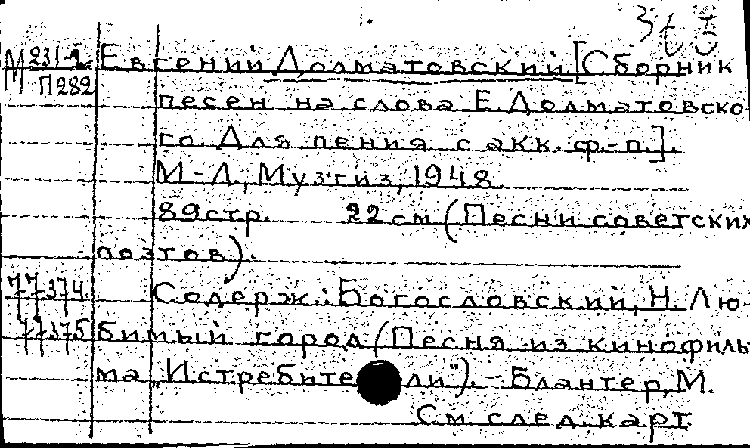 М 231-2 Евгений Долматовский [Сборник
П282 песен на слова Е. Долматовско-
го. Для пения с акк. ф-п.].
М-Л., Музгиз, 1948.
89стр. 22 см (Песни советских
поэтов).
77374 Содерж.: Богословский, Н. Лю-
77375 бимый город (Песня из кинофиль-
ма „Истребители"). - Блантер, М.
См. след. карт.